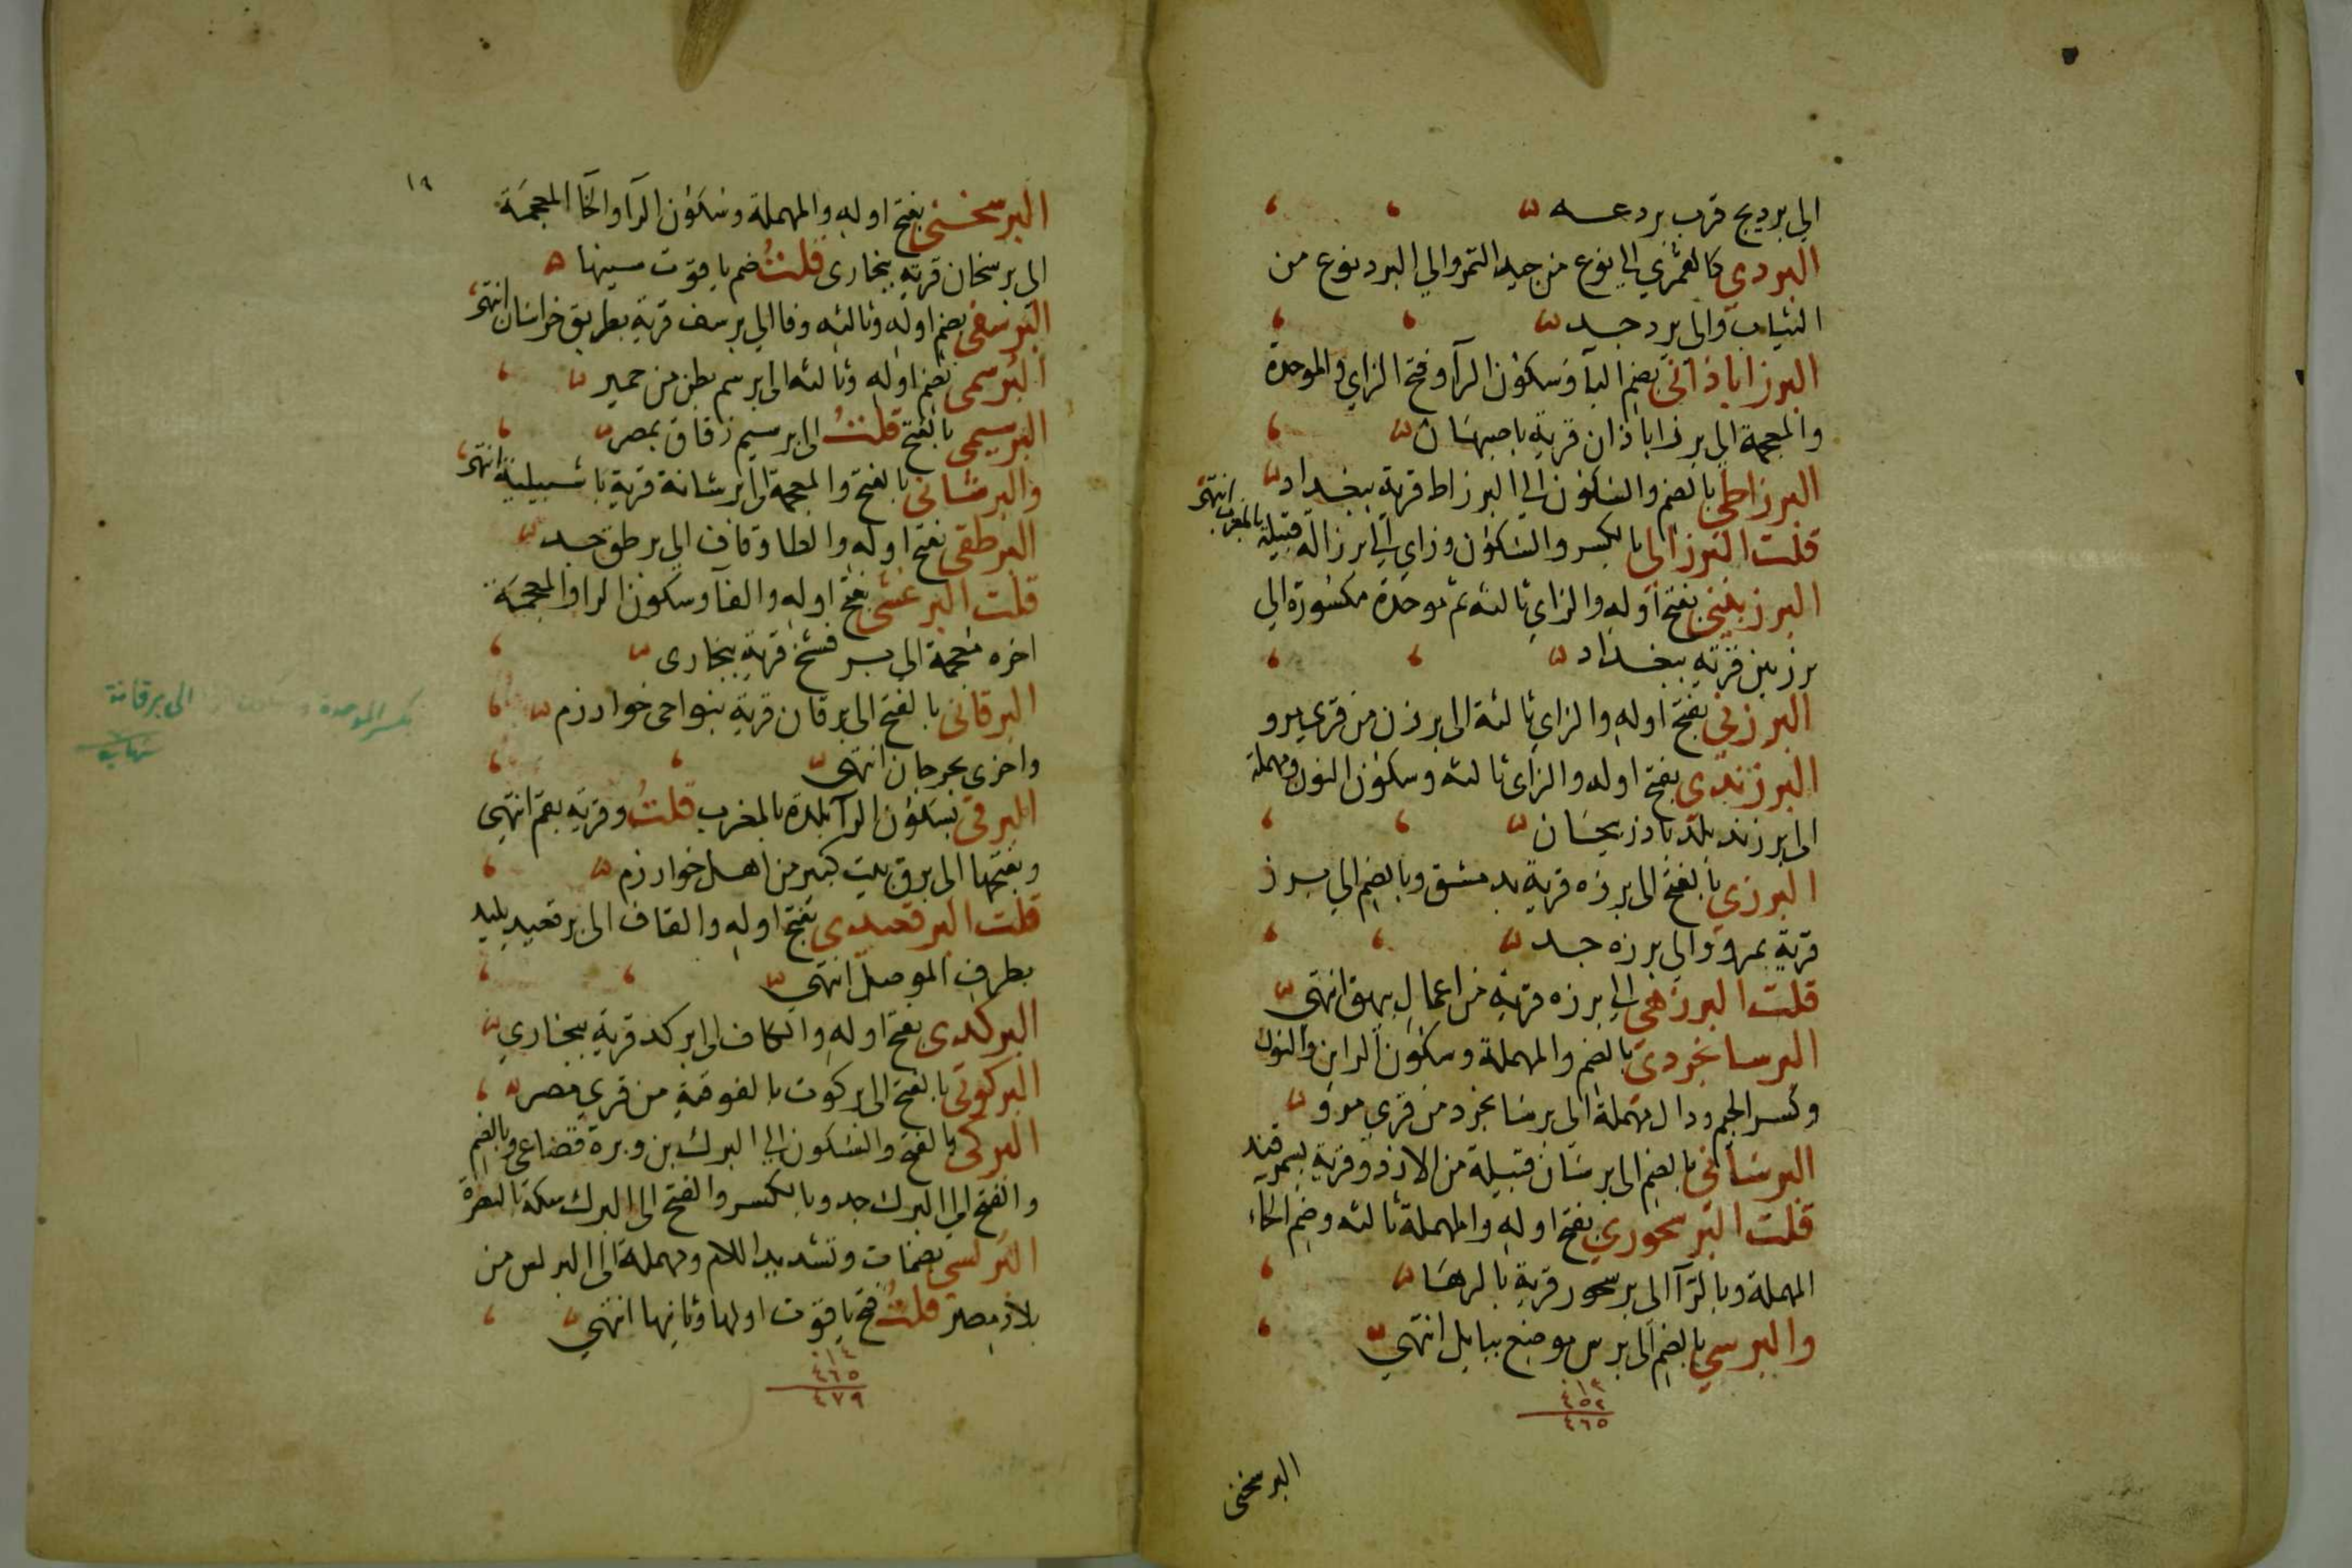 الي برديج قرب بردعه
البردي كالعمري الي نوع من جيد التمر والي البرد نوع من
الثياب والي برد جد
البرزاباذاني بضم الباء وسكون الرآ وفتح الزاي والموحدة
والمعجمة الي برزاباذان قرية باصبهان
البرزاطي بالضم والسكون الي البرزاط قرية ببغداد
قلت البرزالي بالكسر والسكون وزاي الي برزالة قبيلة بالمغرب انتهى
البرزبيني بفتح اوله والزاي ثالثه ثم موحدة مكسورة الي
برزبين قرية ببغداد
البرزني بفتح اوله والزاي ثالثة الي برزن من قري مرو
البرزندي بفتح اوله والزاي ثالثه وسكون النون ومهملة
الي برزند بلد باذربيجان
البرزي بالفتح الي برزه قرية بدمشق وبالضم الي برز
قرية بمرو والي برزه جد
قلت البرزهي الي برزه قرية من اعمال بيهق انتهي
البرسانجردي بالضم والمهملة وسكون الراين والنون
وكسر الجيم ودال مهملة الي برسانجرد من قري مرو
البرساني بالضم الي برسان قبيلة من الازد وقرية بسمرقند
قلت البرسحوري بفتح اوله والمهملة ثالثه وضم الحاء
المهملة وبالرآ الي برسحور قرية بالرها
والبرسي بالضم الي برس موضع ببابل انتهي
١٣
٤٥٢
٤٦٥
البرسخنى
١٩
البرسخني بفتح اوله والمهملة وسكون الرآ والخا المعجمة
الي برسخان قرية ببخارى قلت ضم ياقوت سينها
البرسفي بضم اوله وثالثه وفا الي برسف قرية بطريق خراسان انتهى
البرسمى بضم اوله وثالثه الي برسم بطن من حمير
البرسيمى بالفتح قلت الي برسيم زقاق بمصر
والبرشاني بالفتح والمعجمة الي برشانة قرية باشبيلية انتهى
البرطقي بفتح اوله والطا وقاف الي برطق جد
قلت البرغشي بفتح اوله والفآ وسكون الرا والمعجمة
اخره معجمة الي برفشخ قرية ببخارى
البرقاني بالفتح الي برقان قرية بنواحي خوارزم
واخري بجرجان انتهى
البرقي بسكون الرآ بلدة بالمغرب قلت وقرية بقم انتهى
وبفتحها الي برق بيت كبير من اهل خوارزم
قلت البرقعيدي بفتح اوله والقاف الي برقعيد بليد
بطرف الموصل انتهي
البركدي بفتح اوله والكاف الي بركد قرية ببخاري
البركوتي بالفتح الي بركوت بالفوقية من قري مصر
البركي بالفتح والسكون الي البرك بن وبرة قضاعي وبالضم
والفتح الي البرك جد وبالكسر والفتح الي البرك سكة بالبصرة
البرلسي بضمات وتشديد اللام ومهملة الي البرلس من
بلاد مصر قلت فتح ياقوت اولها وثانيها انتهي
١٤
٤٦٥
٤٧٩
بكسر الموحدة الى برقانة